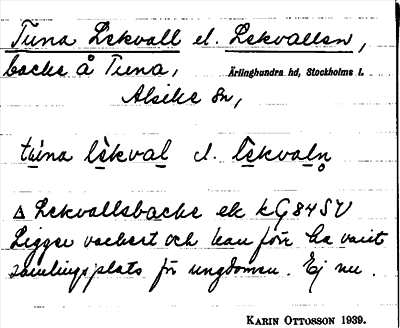 Tuna Lekvall el. Lekvallen,
backe å Tuna, Ärlinghundra hd, Stockholms l.
Alsike sn,
túna lèkval el. lèkvaln̥
△ Lekvallsbacke ek kG84SV
Ligger vackert och kan förr ha varit
samlingsplats för ungdomen. Ej nu.
KARIN OTTOSSON 1939.